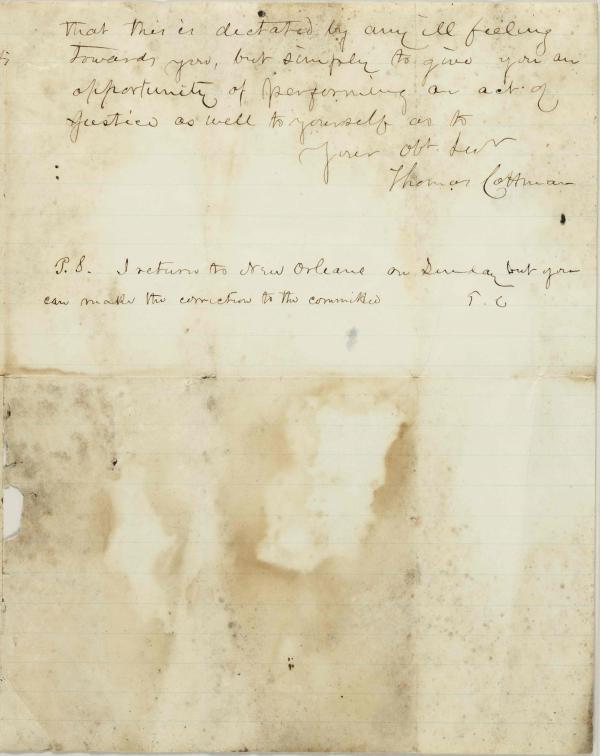 that this is dictated by any ill feeling
towards you, but simply to give you an
opportunity of performing an act of
Justice as well to yourself as to
Your Obt Sevt
Thomas Cottman
P.S. I return to New Orleans on Sunday but you
can make the correction to the committee T. C